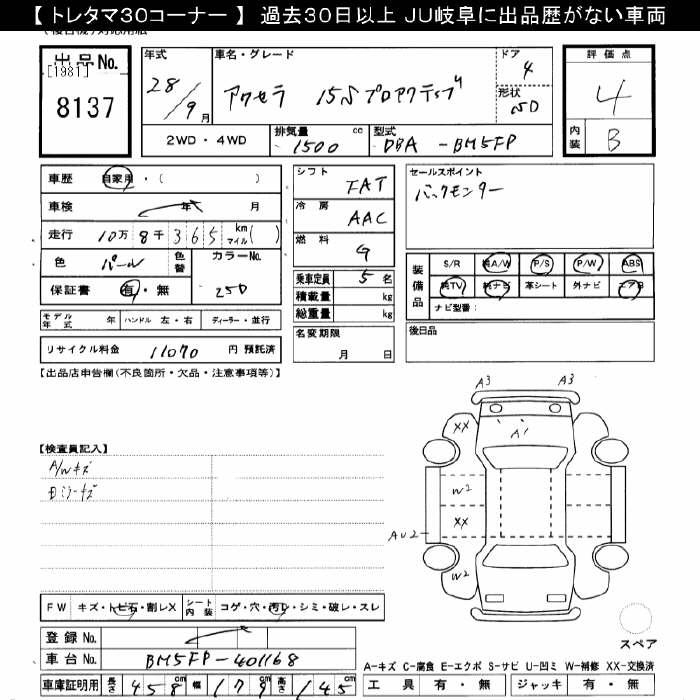 【 トレタマ30コーナー 】 過去30日以上 JU岐阜に出品歴がない車両
出品No.
[1981]
8137
年式 28/9月
車名・グレード アクセラ 15S プロアクティブ
ドア 4
形状 SD
評価点 4
内装 B
2WD・4WD
排気量 1500 cc
型式 DBA -BM5FP
車歴 自家用・( )
車検 年 月
走行 10万 8千 365 km マイル( )
色 パール 色替 カラーNo. 25D
保証書 有・無
モデル年式 年 ハンドル 左・右 ディーラー・並行
リサイクル料金 11070 円 預託済
シフト FAT
冷房 AAC
燃料 G
乗車定員 5 名
積載量 kg
総重量 kg
名変期限 月 日
セールスポイント
バックモニター
装備品 S/R 純A/W P/S P/W ABS
純TV 純ナビ 革シート 外ナビ エアB
ナビ型番:
後日品
【出品店申告欄(不良箇所・欠品・注意事項等)】
【検査員記入】
A/Wキズ
A3 A3
XX
A1
W2
XX
AU2
W2
FW キズ・トビ石・割レX シート内装 コゲ・穴・汚レ・シミ・破レ・スレ
登録 No.
車台 No. BM5FP-401168
車庫証明用 長さ 458 cm 幅 179 cm 高さ 145 cm
スペア
A-キズ C-腐食 E-エクボ S-サビ U-凹ミ W-補修 XX-交換済
工具 有・無 ジャッキ 有・無